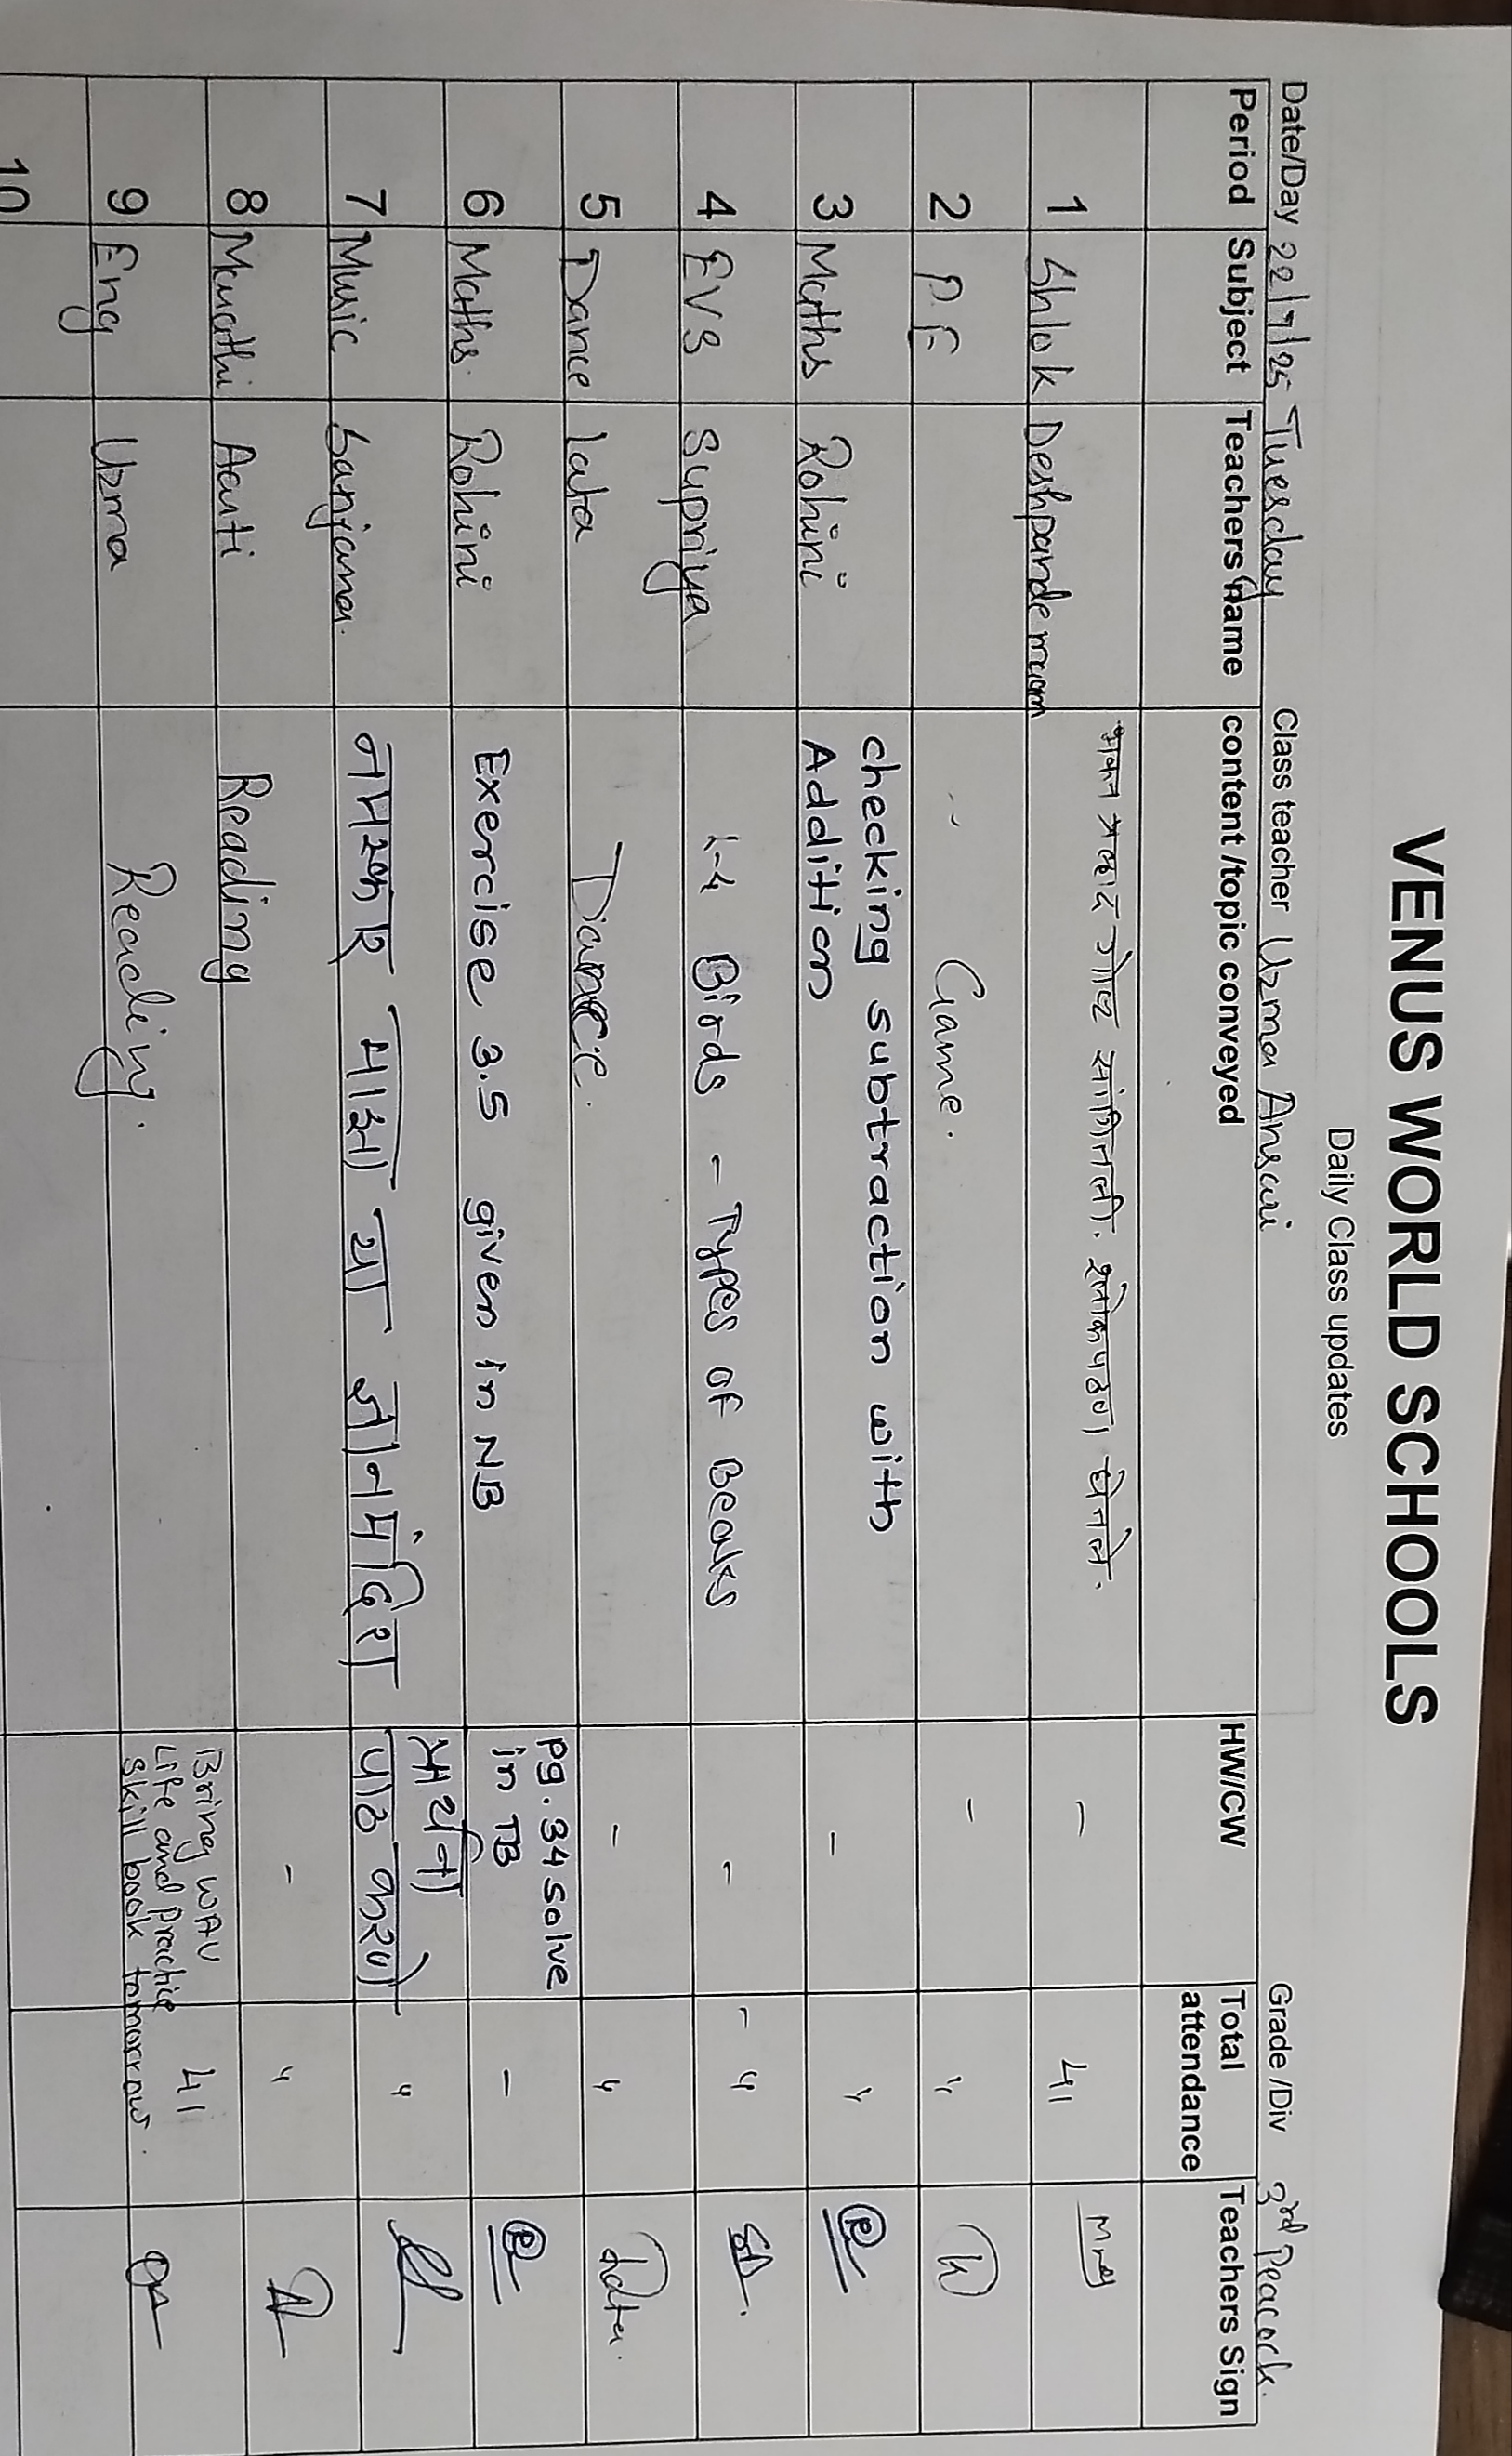 VENUS WORLD SCHOOLS
Daily Class updates
Date/Day 22/7/25 Tuesday Class teacher Uzma Ansari Grade /Div 3rd Peacock.
Period Subject Teachers Name content /topic conveyed HW/CW Total attendance Teachers Sign
1 Shlok Deshpande maam भक्त प्रल्हाद गोष्ट सांगितली. श्लोक पठण घेतले. - 41
2 P.E Game. - "
3 Maths Rohini checking subtraction with
Addition - "
4 EVS Supriya L-4 Birds - Types of Beaks - - "
5 Dance lata Dance. - " Lata.
6 Maths. Rohini Exercise 3.5 given in NB pg. 34 solve
in TB -
7 Music Sanjana. नमस्कार माझा या ज्ञानमंदिरा प्रार्थना
पाठ करणे "
8 Marathi Aarti Reading - "
9 Eng Uzma Reading. Bring WAU
Life and Practice
skill book tomorrow. 41
10